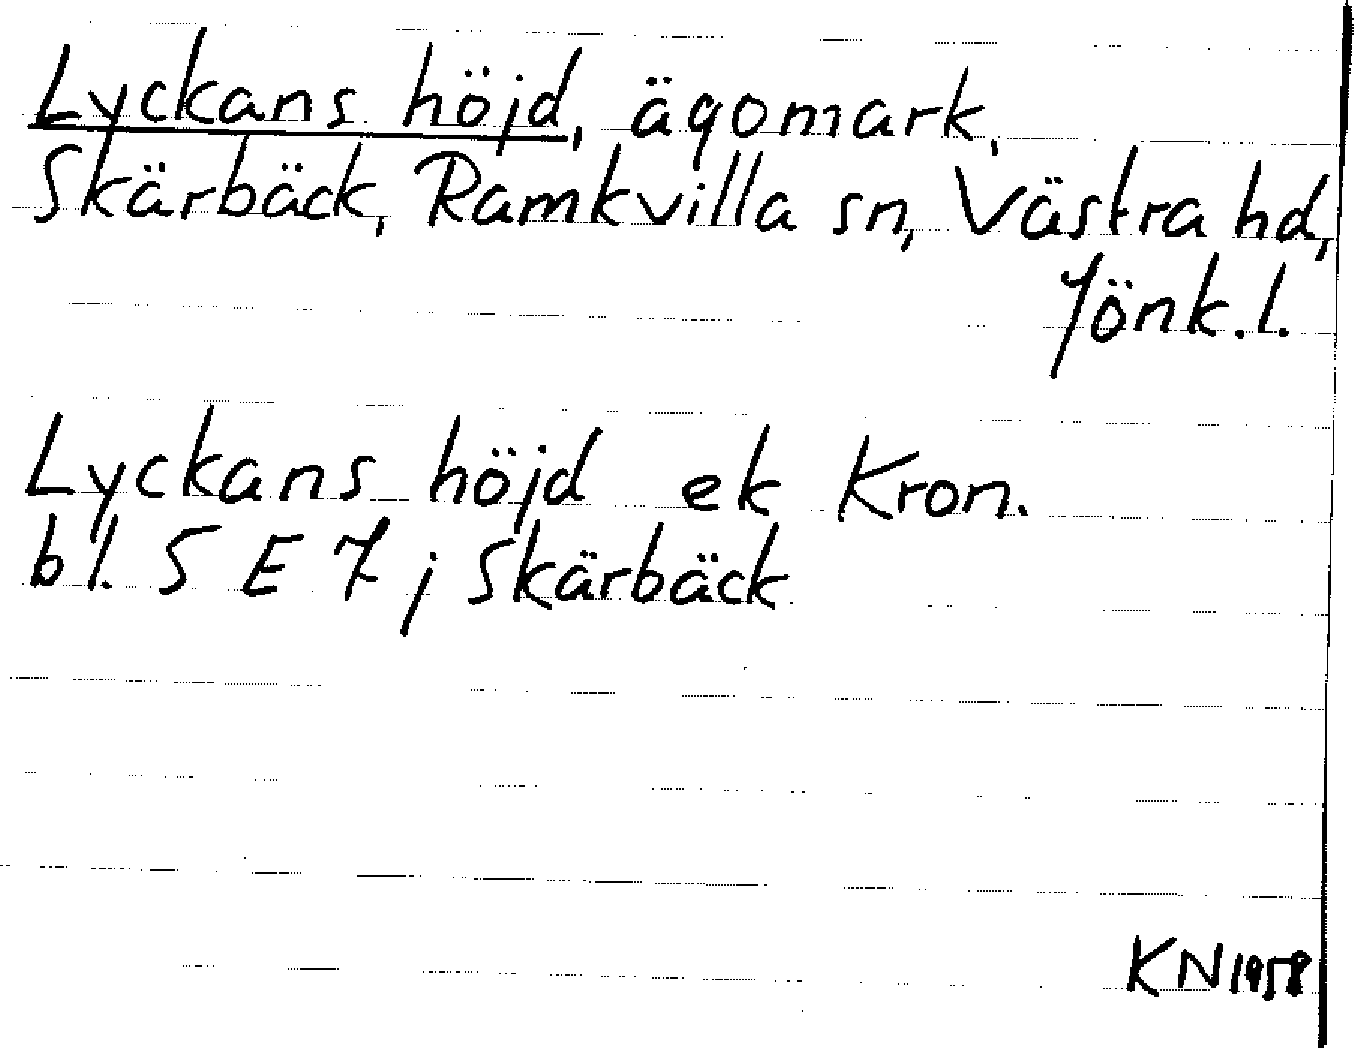 Lyckans höjd, ägomark,
Skärbäck, Ramkvilla sn, Västra hd,
Jönk.l.
Lyckans höjd ek Kron.
bl. 5 E 7 ; Skärbäck
KN 1958